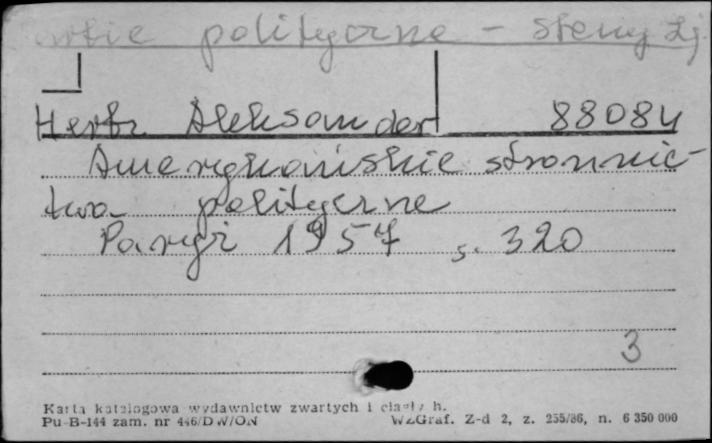 partie polityczne - Stany Zj.
Hertz Aleksander 88084
Amerykańskie stronnic-
twa polityczne
Paryż 1957 s. 320
3
Karta katalogowa wydawnictw zwartych i ciągły h.
Pu-B-144 zam. nr 446/DW/ON WZGraf. Z-d 2, z. 255/86, n. 6 350 000